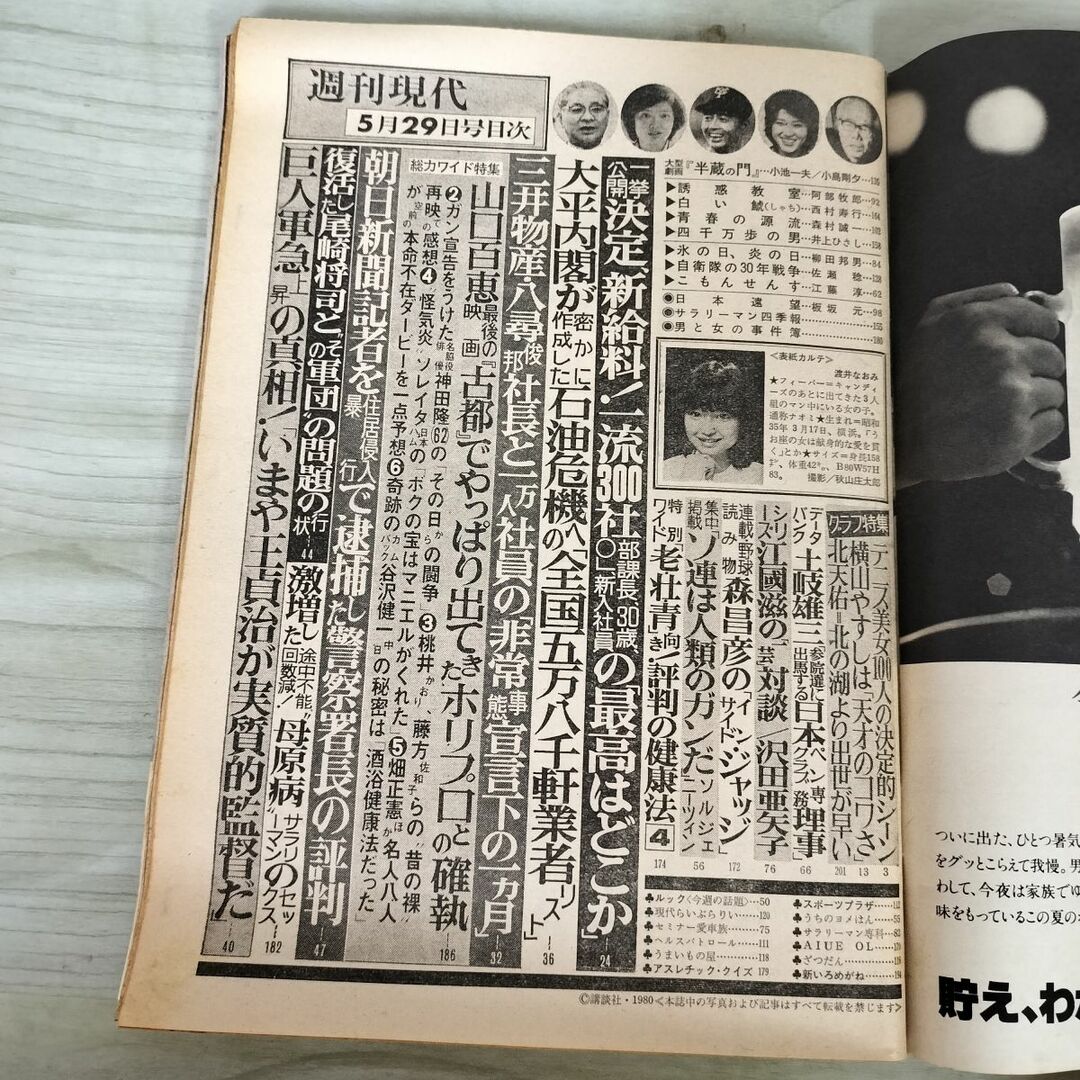 週刊現代
5月29日号目次
大型劇画『半蔵の門』…小池一夫／小島剛夕…136
▶誘惑教室…阿部牧郎…92
▶白い鯱(しゃち)…西村寿行…164
▶青春の源流…森村誠一…102
▶四千万歩の男…井上ひさし…158
▶氷の日、炎の日…柳田邦男…84
▶自衛隊の30年戦争…佐瀬稔…128
▶こもんせんす…江藤淳…62
◉日本遠望…板坂元…98
◉サラリーマン四季報…155
◉男と女の事件簿…180
＜表紙カルテ＞
渡井なおみ
★フィーバー＝キャンディ
ーズのあとに出てきた3人
組のマン中にいる女の子。
通称ナオミ★生まれ＝昭和
35年3月17日、横浜。「う
お座の女は献身的な愛を貫
く」とか★サイズ＝身長158
㌢、体重42㌔、B80W57H
83。 撮影／秋山庄太郎
グラフ特集
テニス美女100人の決定的シーン 3
横山やすしは「天才のコワさ」 13
北天佑＝北の湖より出世が早い 201
データバンク 土岐雄三「参院選に出馬する日本ペンクラブ専務理事」 66
シリーズ 江國滋の「芸」対談／沢田亜矢子 76
連載野球読み物 森昌彦の「インサイド・ジャッジ」 172
集中掲載 ソ連は人類のガンだ ソルジェニーツィン 56
特別ワイド「老壮青」向き／評判の健康法 4 174
一挙公開 決定、新給料！一流300社「部課長、30歳、新入社員」の「最高はどこか」－24
大平内閣が密かに作成した石油危機へ「全国五万八千軒業者リスト」－36
三井物産・八尋俊邦社長と一万人社員の「非常事態宣言下の一ヵ月」－32
総力ワイド特集
山口百恵 最後の映画『古都』でやっぱり出てきたホリプロとの確執
②ガン宣告をうけた名脇役俳優神田隆(62)の「その日からの闘争」③桃井かおり、藤方佐和子らの「昔の裸」
再映での感想④怪気炎“ソレイタ”日本ハムの「ボクの宝はマニエルがくれた」⑤畑正憲ほか名人八人
が空前の本命不在ダービーを一点予想⑥奇跡のカムバック谷沢健一(中日)の秘密は「酒浴健康法だった」
186
朝日新聞記者を「住居侵入」「暴行」で逮捕した警察署長の評判－47
復活した尾崎将司と“その軍団”の問題の行状－44
激増した“途中不能”“回数減”！母原病サラリーマンのセックス－182
巨人軍急上昇の真相！「いまや王貞治が実質的監督だ」－40
♣ルック〈今週の話題〉…50
♣現代らいぶらりい…120
♣セミナー愛車族…75
♣ヘルスパトロール…111
♣うまいもの屋…118
♣アスレチック・クイズ179
♣スポーツプラザ…112
♣うちのヨメはん…55
♣サラリーマン専科…83
♣AIUE OL…170
♣ざつだん…116
♣新いろめがね…194
©講談社・1980＜本誌中の写真および記事はすべて転載を禁じます＞
ついに出た、ひとつ暑気
をグッとこらえて我慢。男
わして、今夜は家族でゆ
味をもっているこの夏の
貯え、わか